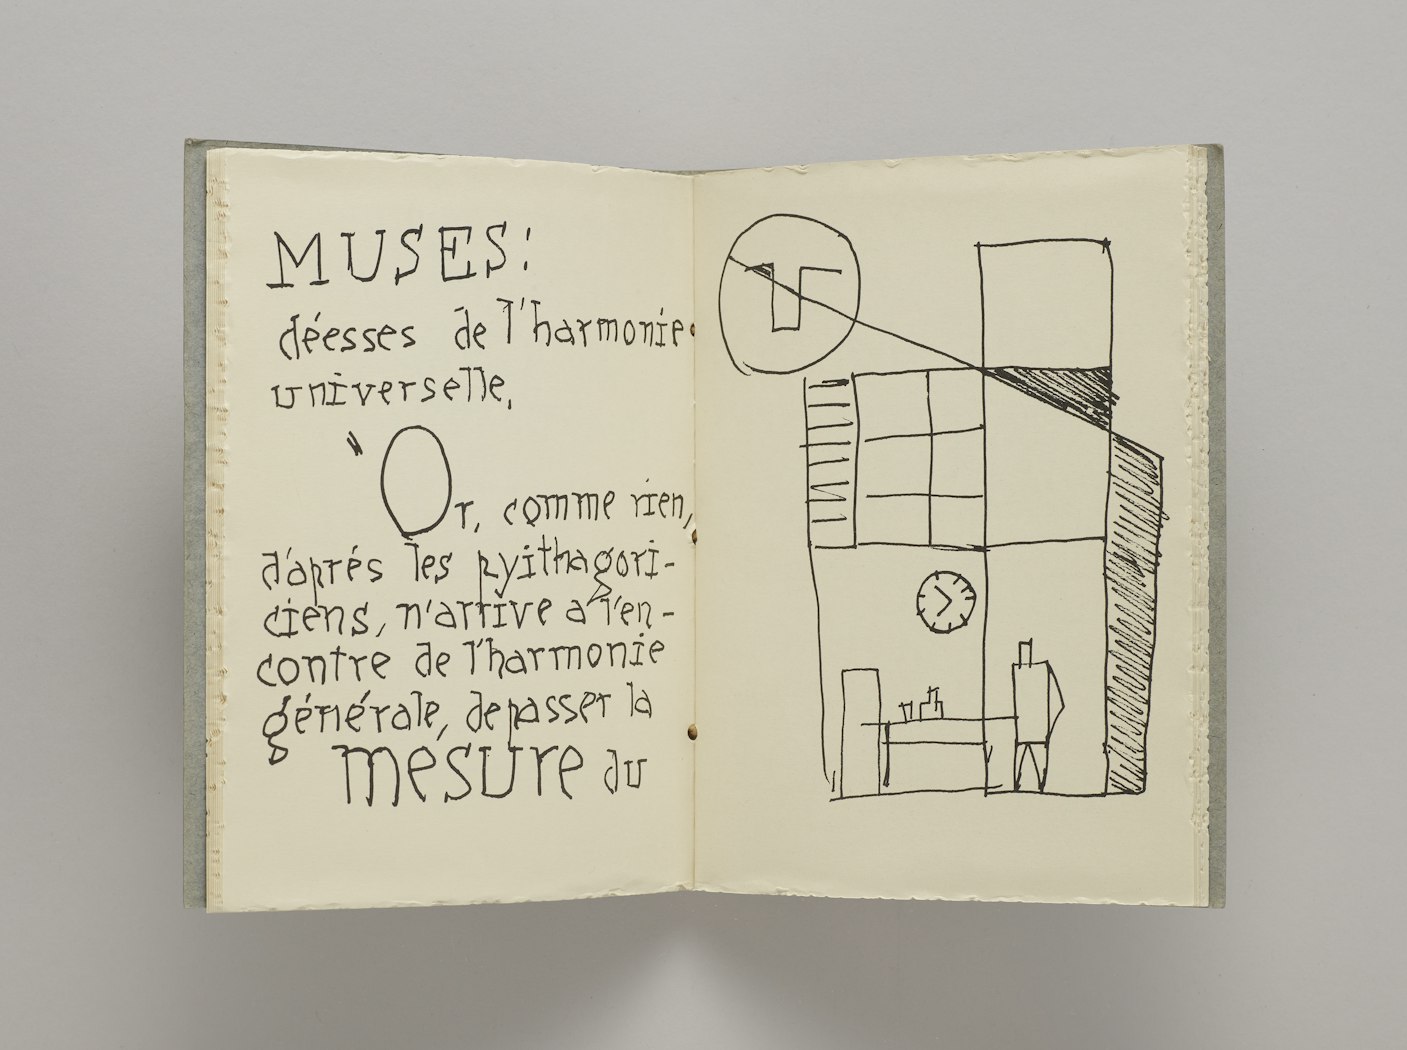 MUSES:
déesses de l'harmonie
universelle.
Or, comme rien,
d'aprés les pyithagori-
ciens, n'arrive a l'en-
contre de l'harmonie
générale, depasser la
mesure du